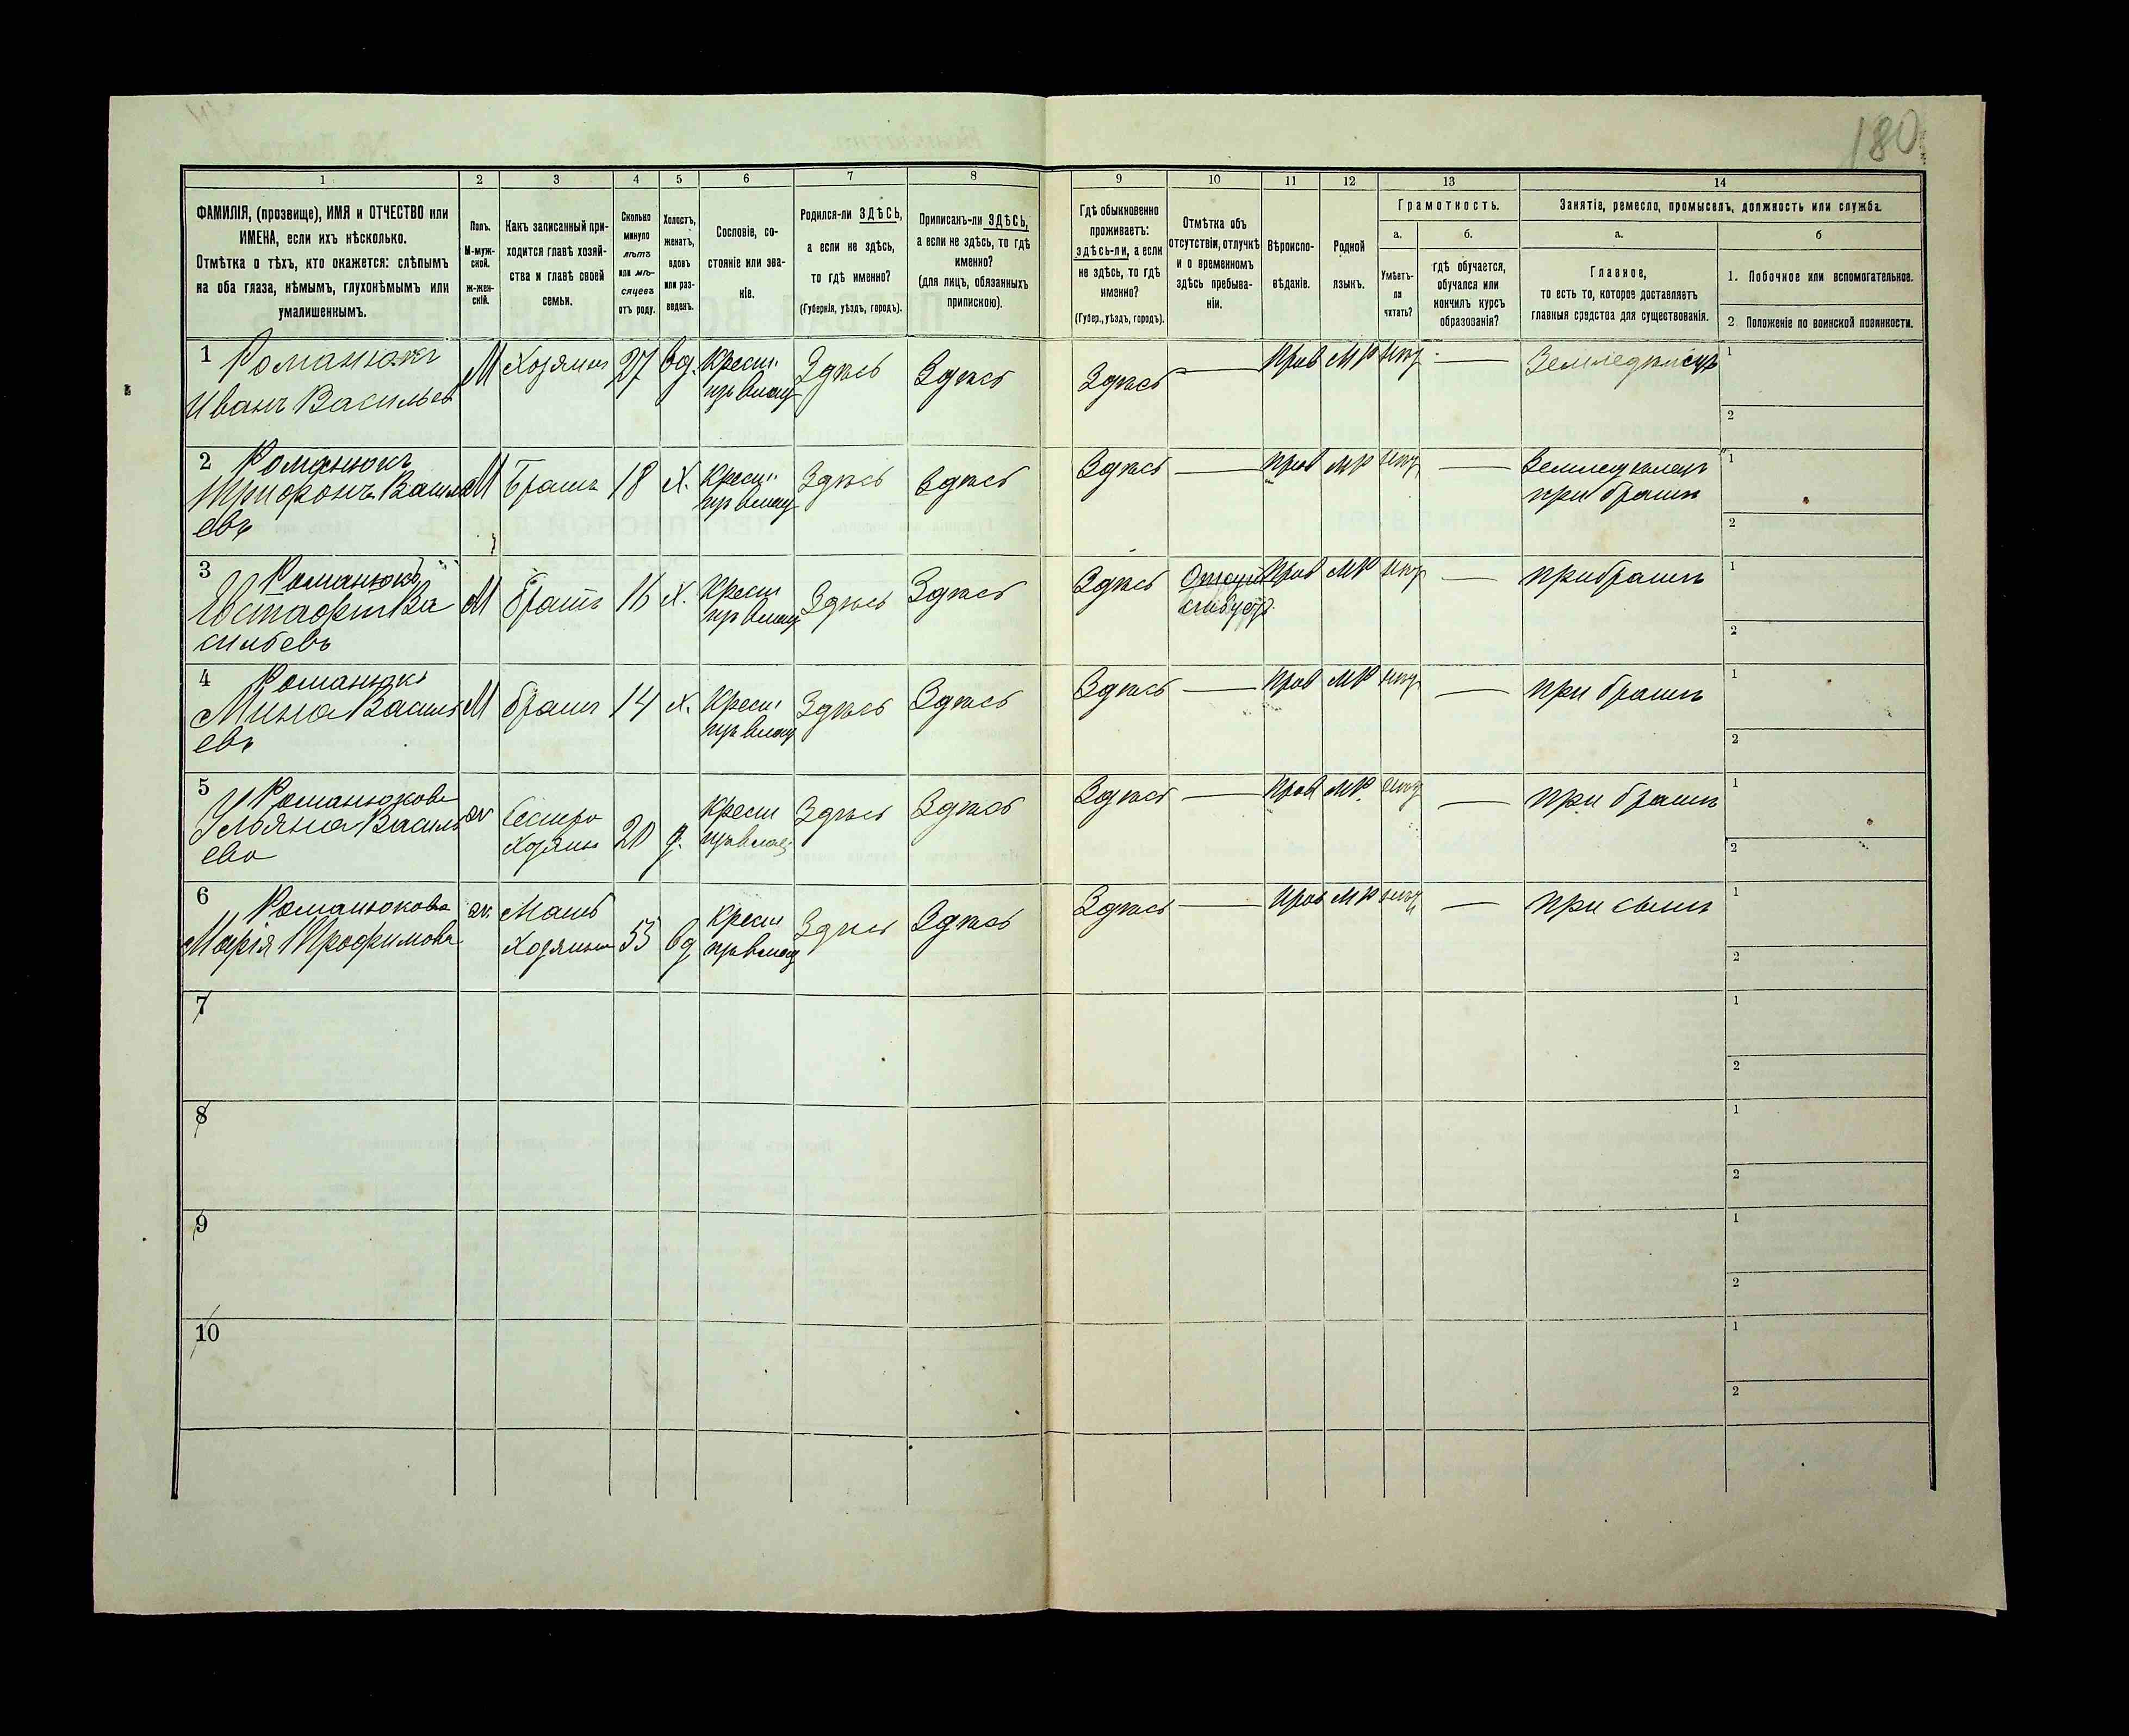 180
1 2 3 4 5 6 7 8 9 10 11 12 13 14
ФАМИЛІЯ, (прозвище), ИМЯ и ОТЧЕСТВО или
ИМЕНА, если ихъ нѣсколько.
Отмѣтка о тѣхъ, кто окажется: слѣпымъ
на оба глаза, нѣмымъ, глухонѣмымъ или
умалишеннымъ.
Полъ.
М-муж-
ской.
ж-жен-
скій.
Какъ записанный при-
ходится главѣ хозяй-
ства и главѣ своей
семьи.
Сколько
минуло
лѣтъ
или мѣ-
сяцевъ
отъ роду.
Холостъ,
женатъ,
вдовъ
или раз-
веденъ.
Сословіе, со-
стояніе или зва-
ніе.
Родился-ли ЗДѢСЬ,
а если не здѣсь,
то гдѣ именно?
(Губернія, уѣздъ, городъ).
Приписанъ-ли ЗДѢСЬ,
а если не здѣсь, то гдѣ
именно?
(для лицъ, обязанныхъ
припискою).
Гдѣ обыкновенно
проживаетъ:
здѣсь-ли, а если
не здѣсь, то гдѣ
именно?
(Губер., уѣздъ, городъ).
Отмѣтка объ
отсутствіи, отлучкѣ
и о временномъ
здѣсь пребыва-
ніи.
Вѣроиспо-
вѣданіе.
Родной
языкъ.
Грамотность.
а.
Умѣетъ-
ли
читать?
б.
гдѣ обучается,
обучался или
кончилъ курсъ
образованія?
Занятіе, ремесло, промыселъ, должность или служба.
а.
Главное,
то есть то, которое доставляетъ
главныя средства для существованія.
б
1. Побочное или вспомогательное.
2. Положеніе по воинской повинности.
1 Романюкъ
Иванъ Васильев
М Хозяинъ 27 Вд. Крест. изъ влад Здѣсь Здѣсь Здѣсь — Прав МР нѣт — Земледѣлецъ 1
2
2 Романюкъ
Трифонъ Василь
евъ
М Братъ 18 Х. Крест. изъ влад Здѣсь Здѣсь Здѣсь — Прав МР нѣт — Земледѣлецъ 1
при братѣ
2
3 Романюкъ
Евстафій Ва
сильевъ
М братъ 16 Х. Крест изъ влад Здѣсь Здѣсь Здѣсь Прав МР нѣт — при братѣ 1
2
4 Романюкъ
Мина Василь
евъ
М братъ 14 Х. Крест изъ влад Здѣсь Здѣсь Здѣсь — Прав МР нѣт — при братѣ 1
2
5 Романюкова
Ульяна Василь
ева
ж Сестра Хозяина 20 д. Крест изъ влад Здѣсь Здѣсь Здѣсь — Прав МР. нѣт — при братѣ 1
2
6 Романюкова
Марія Трофимова
ж. Мать Хозяина 53 Вд Крест изъ влад Здѣсь Здѣсь Здѣсь — Прав МР нѣт — при сынѣ 1
2
7 1
2
8 1
2
9 1
2
10 1
2